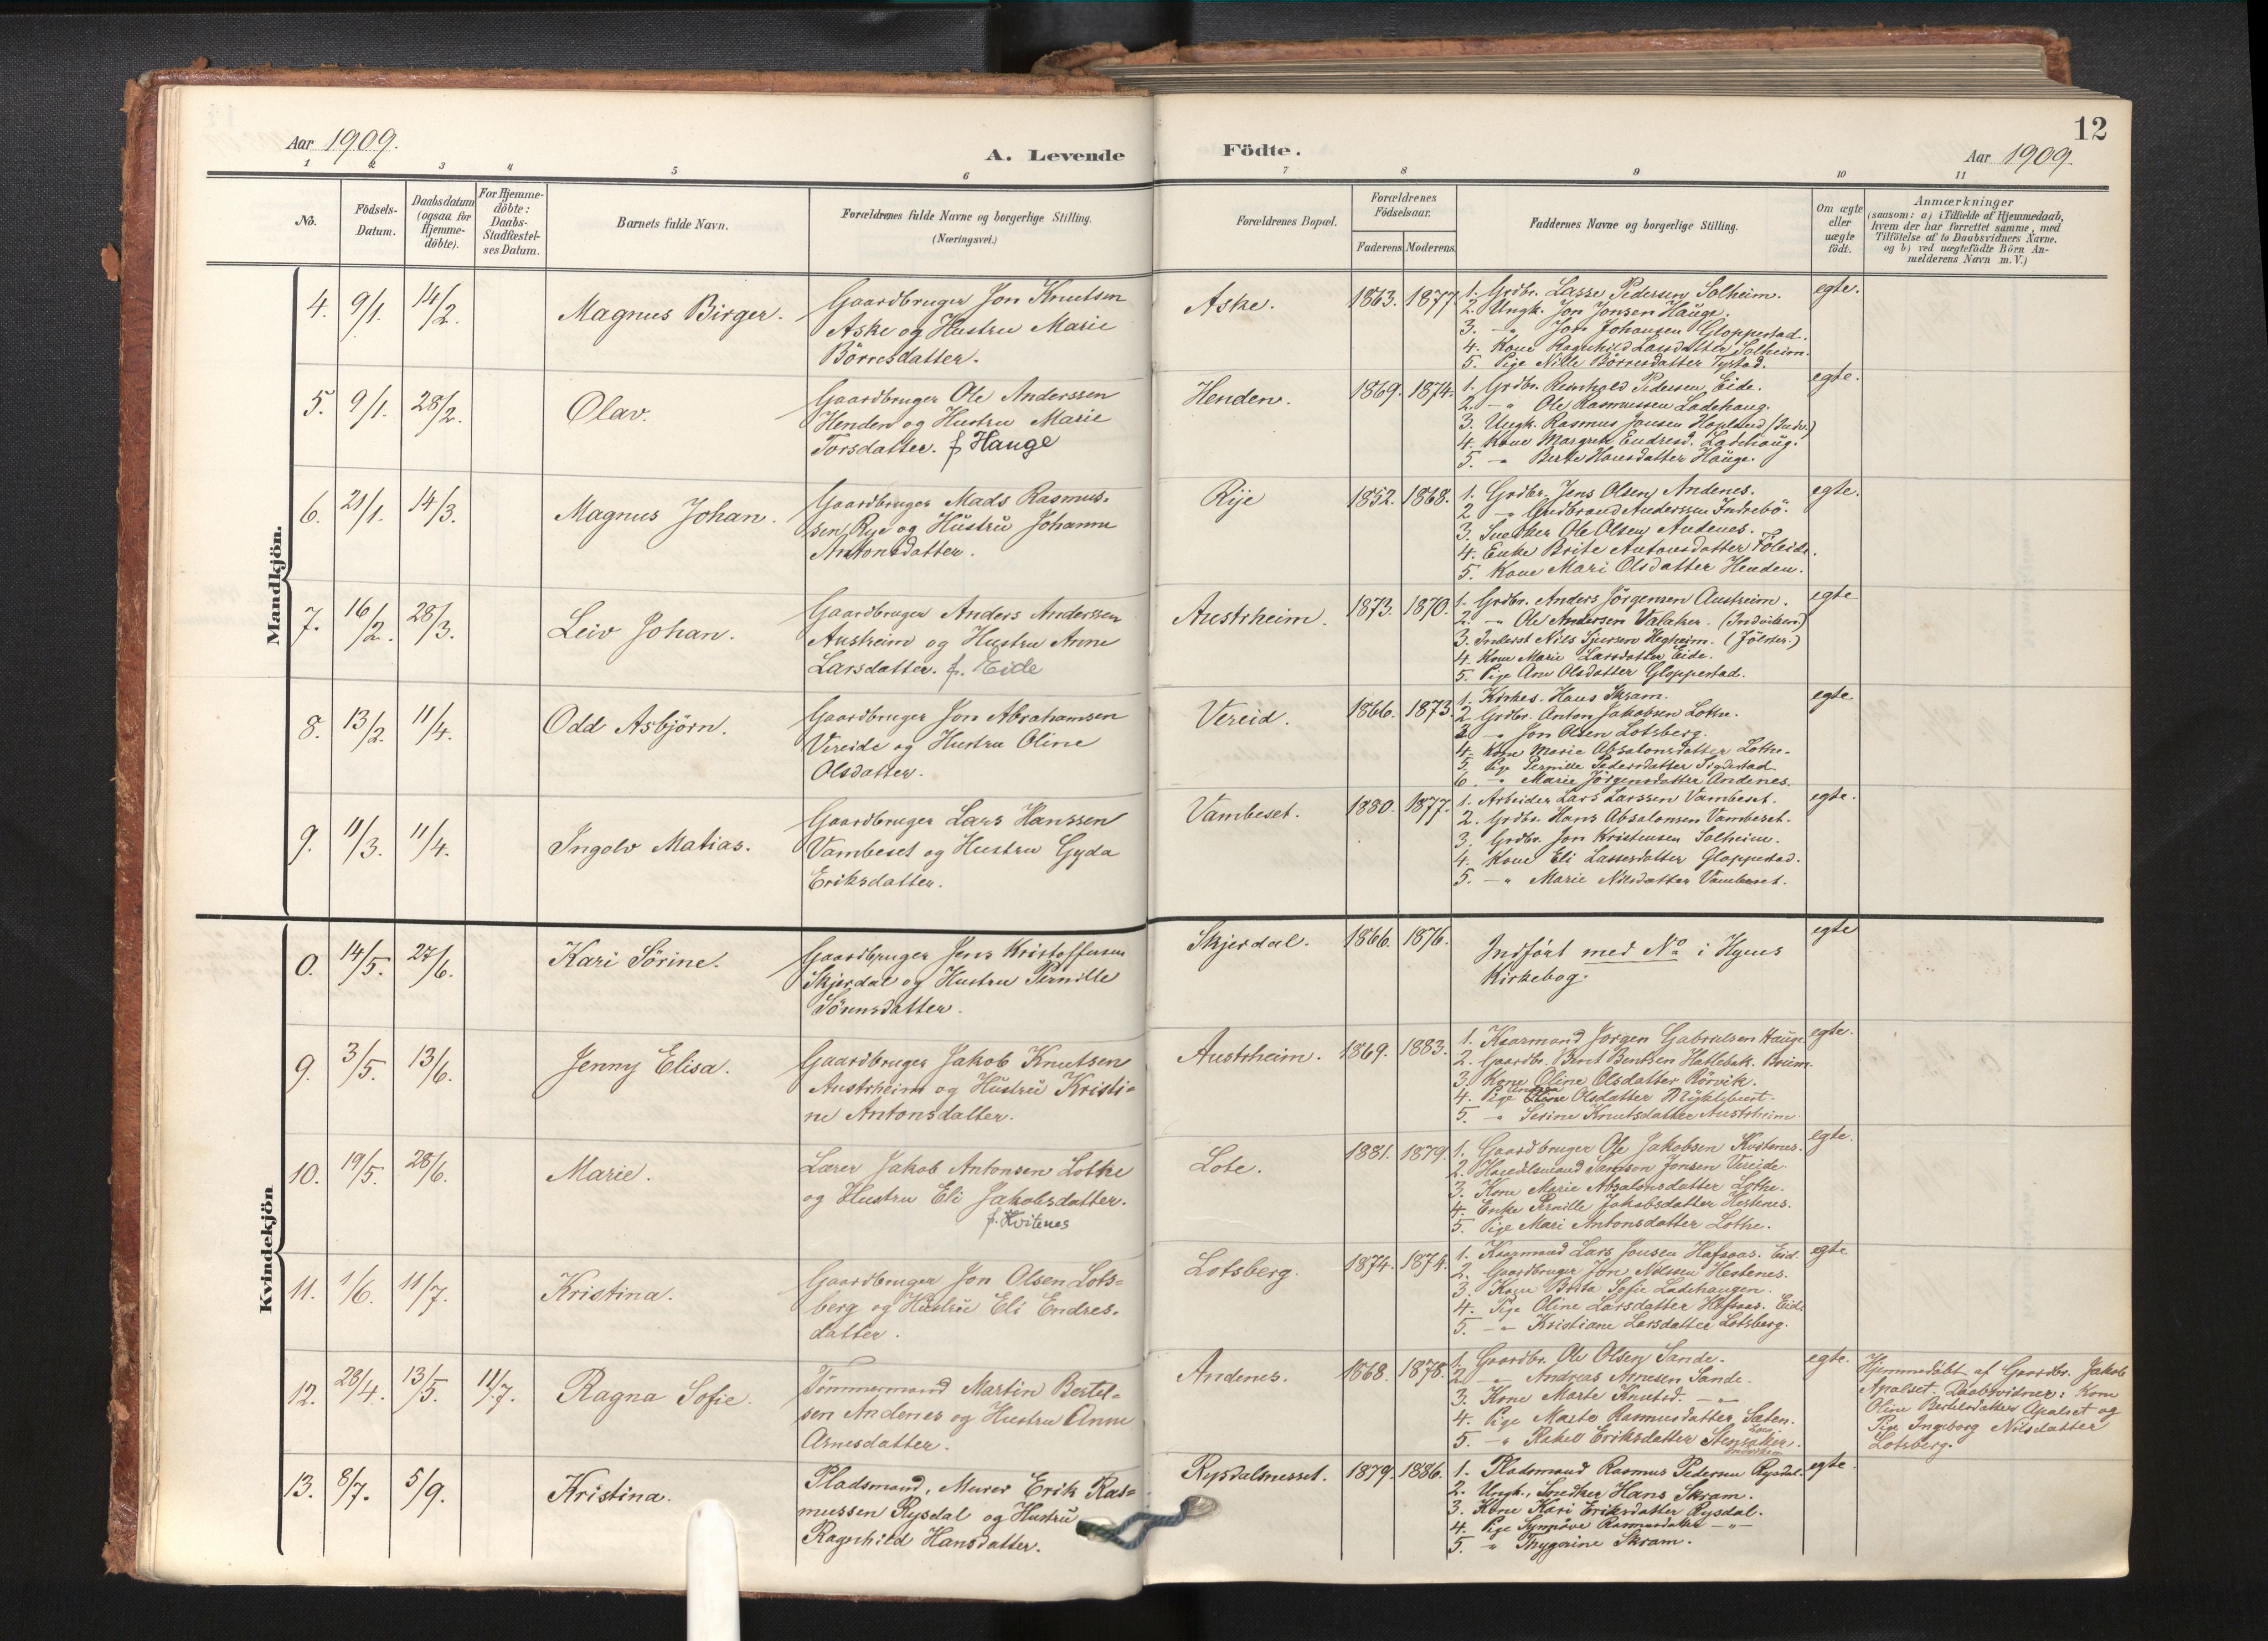 12
Aar 1909.
A. Levende
Födte.
Aar 1909.
1 2 3 4 5 6 7 8 9 10 11
No.
Födsels-
Datum.
Daabsdatum
(ogsaa for
Hjemme-
döbte).
For Hjemme-
döbte:
Daabs-
Stadfæstel-
ses Datum.
Barnets fulde Navn.
Forældrenes fulde Navne og borgerlige Stilling.
(Næringsvei.)
Forældrenes Bopæl.
Forældrenes
Födselsaar.
Faderens. Moderens.
Faddernes Navne og borgerlige Stilling.
Om ægte
eller
uægte
födt.
Anmærkninger
(saasom: a) i Tilfælde af Hjemmedaab,
hvem der har forrettet samme, med
Tilföielse af to Daabsvidners Navne.
og b) ved uægtefödte Börn An-
melderens Navn m. V.)
Mandkjön.
4. 9/1. 14/2. Magnus Birger.
Gaardbruger Jon Knutsen
Aske og Hustru Marie
Börresdatter.
Aske. 1863. 1877.
1. Grdbr. Lasse Pedersen Solheim.
2. Ungk. Jon Jonsen Hauge.
3. -"- Jon Johansen Gloppestad.
4. Kone Ragnhild Lassedatter Solheim.
5. Pige Nille Börresdatter Tystad.
egte.
5. 9/1. 28/2. Olav.
Gaardbruger Ole Anderssen
Henden og Hustru Marie
Torsdatter. f Hauge
Henden. 1869. 1874.
1. Grdbr. Reinhold Pedersen Eide.
2. -"- Ole Rasmussen Ladehaug.
3. Ungk. Rasmus Jonsen Hopland (Indv.)
4. Kone Margrete Endresd. Ladehaug.
5. -"- Berte Hansdatter Hauge.
egte.
6. 21/1. 14/3. Magnus Johan.
Gaardbruger Mads Rasmus-
sen Rye og Hustru Johanne
Antonsdatter.
Rije 1852. 1868.
1. Grdbr. Jens Olsen Andenes.
2 -"- Gudbrand Anderssen Indrebö.
3. Snedker Ole Olsen Andenes.
4. Enke Brite Antonsdatter Föleide.
5. Kone Mari Olsdatter Henden.
egte.
7. 16/2. 28/3. Leiv Johan.
Gaardbruger Anders Anderssen
Austreim og Hustru Anne
Larsdatter. f. Eide
Austrheim. 1873. 1870.
1. Grdbr. Anders Jörgensen Austreim.
2. -"- Ole Andersen Valaker. (Indviken)
3. Inderst Nils Sjursen Hegheim. (Jölster.)
4. Kone Marie Larsdatter Eide.
5. Pige Ane Olsdatter Gloppestad.
egte
8. 13/2. 11/4. Odd Asbjörn.
Gaardbruger Jon Abrahamsen
Vereide og Hustru Oline
Olsdatter.
Vereid. 1866. 1873.
1. Kirkes. Hans Skram.
2 Grdbr. Anton Jakobsen Lothe.
3. -"- Jon Olsen Lotsberg.
4. Kone Marie Absalonsdatter Lothe.
5. Pige Pernille Pedersdatter
6. -"- Marie Jörgensdatter Andenes.
egte.
9. 11/3. 11/4. Ingolv Matias.
Gaardbruger Lars Hanssen
Vambeset og Hustru Gyda
Eriksdatter.
Vambeset. 1880. 1877.
1. Arbeider Lars Larssen Vambeset.
2. Grdbr. Hans Absalonsen Vambeset.
3. Grdbr. Jon Kristensen Solheim.
4. Kone Eli Lassesdatter Gloppestad.
5. -"- Marie Nilsdatter Vambeset.
egte.
Kvindekjön
0. 14/5. 27/6. Kari Sörine.
Gaardbruger Jens Kristoffersen
Skjerdal og Hustru Pernille
Sörensdatter.
Skjerdal. 1866. 1876.
Indfört med No i Hyens
Kirkebog.
egte
9. 3/5. 13/6. Jenny Elisa.
Gaardbruger Jakob Knutsen
Austrheim og Hustru Kristi-
ne Antonsdatter.
Austrheim. 1869. 1883.
1. Kaarmand Jörgen Gabrielsen Hauge
2. Gaardbr. Bent Bentsen Hatlebak. Breim.
3. Kone Oline Olsdatter Rörvik.
4. Pige Olsdatter Myklebust.
5. -"- Serine Knutsdatter Austrheim.
egte.
10. 19/5. 28/6. Marie.
Lærer Jakob Antonsen Lothe
og Hustru Eli Jakobsdatter.
f. Kvitenes
Lote. 1881. 1879.
1. Gaardbruger Ole Jakobsen Kvitenes.
2. Handelsmand Samson Jonsen Vereide.
3. Kone Marie Absalonsdatter Lothe.
4. Enke Pernille Jakobsdatter Hestenes.
5. Pige Mari Antonsdatter Lothe.
egte.
11. 1/6. 11/7. Kristina.
Gaardbruger Jon Olsen Lots-
berg og Hustru Eli Endres-
datter.
Lotsberg. 1874. 1874.
1. Kaarmand Lars Jonsen Hafsaas. Eid.
2. Gaardbruger Jon Nilssen Hestenes.
3. Kone Brita Sofie Ladehaugen.
4. Pige Oline Larsdatter Hafsaas. Eid.
5. -"- Kristiane Larsdatter Lotsberg.
egte
12. 28/4. 13/5. 11/7. Ragna Sofie.
Tömmermand Martin Bertel-
sen Andenes og Hustru Anne
Arnesdatter.
Andenes. 1868. 1878.
1. Gaardbr. Ole Olsen Sande.
2. -"- Andreas Arnesen Sande.
3. Kone Marte Knutsd. -"-
4. Pige Marte Rasmusdatter Sæten.
5. -"- Rakel Eriksdatter
egte.
Hjemmedöbt af Gaardbr. Jakob
Apalset. Daabsvidner: Kone
Oline Bertelsdatter Apalset og
Pige Ingeborg Nilsdatter
Lotsberg.
13. 8/7. 5/9. Kristina.
Pladsmand, Murer Erik Ras-
mussen Rysdal og Hustru
Ragnhild Hansdatter.
Rysdalsnesset. 1879. 1886.
1. Pladsmand Rasmus Pedersen Rysdal.
2. Ungk., Snedker Hans Skram.
3. Kone Kari Eriksdatter Rysdal.
4. Pige Synnöve Rasmusdatter -"-
5. -"- Thygorine Skram.
egte.